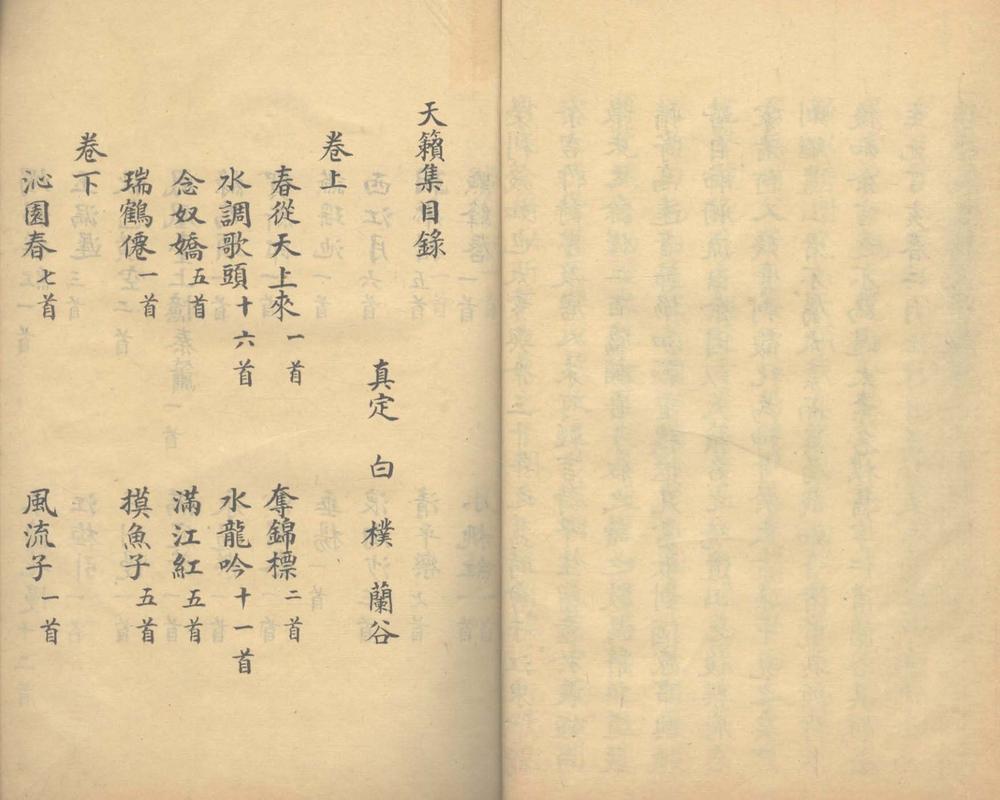 天籟集目錄
真定 白 樸 蘭谷
卷上
春從天上來一首 奪錦標二首
水調歌頭十六首 水龍吟十一首
念奴嬌五首 滿江紅五首
瑞鶴僊一首 摸魚子五首
卷下
沁園春七首 風流子一首